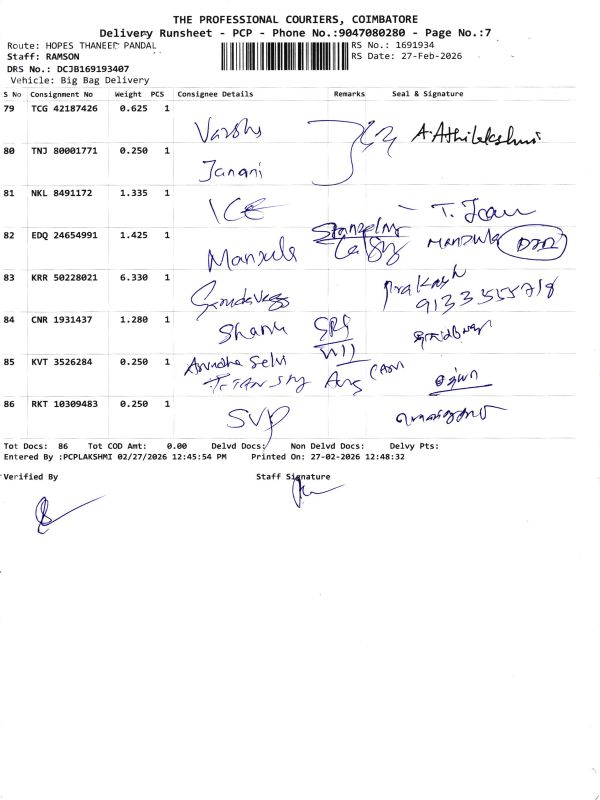 THE PROFESSIONAL COURIERS, COIMBATORE
Delivery Runsheet - PCP - Phone No.:9047080280 - Page No.:7
Route: HOPES THANEER PANDAL RS No.: 1691934
Staff: RAMSON RS Date: 27-Feb-2026
DRS No.: DCJB169193407
Vehicle: Big Bag Delivery
S No Consignment No Weight PCS Consignee Details Remarks Seal & Signature
79 TCG 42187426 0.625 1
Varsha A. Athilakshmi
80 TNJ 80001771 0.250 1
Janani
81 NKL 8491172 1.335 1
ICE
82 EDQ 24654991 1.425 1
Manjula Manjula
83 KRR 50228021 6.330 1
Prakash
84 CNR 1931437 1.280 1
Shanu
85 KVT 3526284 0.250 1
Anudha Selvi
86 RKT 10309483 0.250 1
SVP
Tot Docs: 86 Tot COD Amt: 0.00 Delvd Docs: Non Delvd Docs: Delvy Pts:
Entered By :PCPLAKSHMI 02/27/2026 12:45:54 PM Printed On: 27-02-2026 12:48:32
Verified By Staff Signature